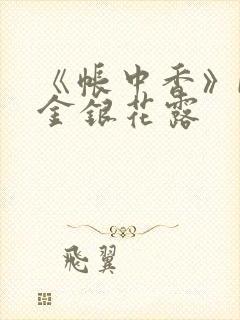 《帳中香》
金銀花露
飛翼